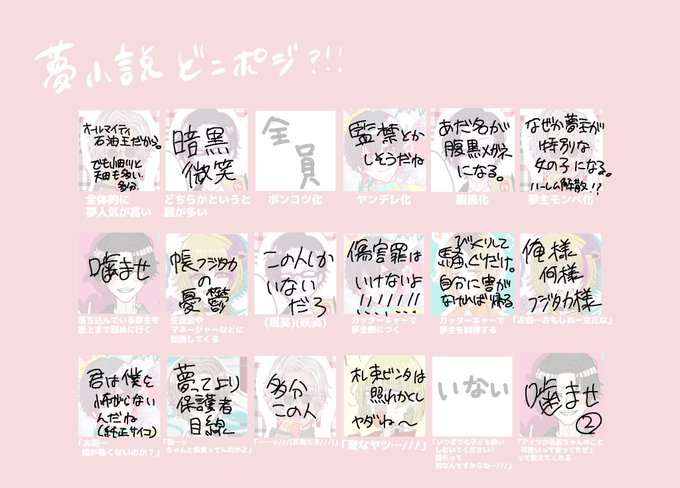 夢小説どこポジ?!!
オールマイティ
石油王だから。
でも小切りと
短も多い
多分
全体的に
夢人気が高い
暗黒
微笑
どちらかというと
裏が多い
全員
ポンコツ化
監禁とか
しそうだね
ヤンデレ化
あだ名が
腹黒メガネ
になる。
腹黒化
なぜか夢主が
特別な
女の子になる。
ハーレム解散!?
夢主モンペ化
噛ませ
落ち込んでいる夢主を
屋上まで慰めに行く
帳フジタカ
の
憂鬱
生徒会や
マネージャーなどに
勧誘してくる
この人しか
いない
だろ
(黒笑)(妖笑)
傷害罪は
いけないよ
!!!!!!!
カッターキャーで
夢主側につく
びっくりして
騒ぐだけ。
自分に害が
なければ帰る
カッターキャーで
夢主を誤解する
俺様
何様
フジタカ様
「お前…おもしれー女だな」
君は僕を
怖がらない
んだね
(純正サイコ)
「お前…
俺が怖くないのか?」
夢ってより
保護者
目線
ちゃんと飯食ってんのかよ」
多分
この人
「……ッ///(反則だろ///)」
札束ビンタは
照れかくし
ヤダね〜
「変なヤツ…///」
いない
「いつまでも子ども扱い
しないでください!
僕だって
男なんですからね…///」
噛ませ
②
「アイツが名前ちゃんのこと
可愛いって言ってたぜ」
って教えてくれる